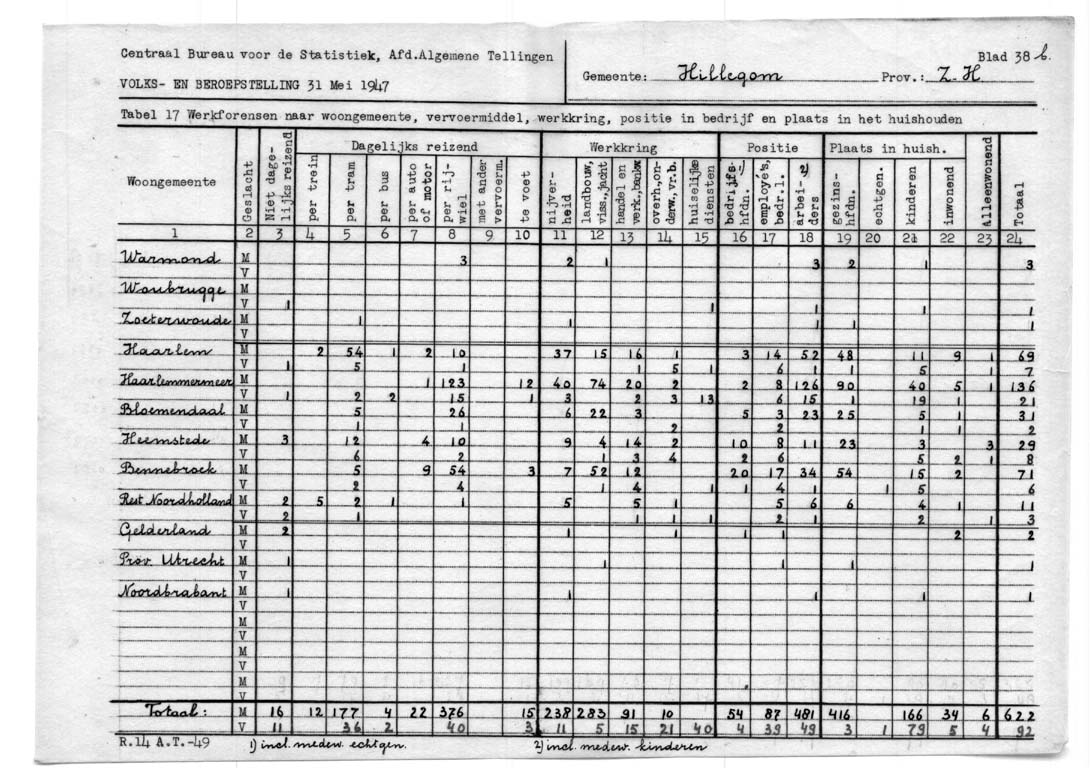 Centraal Bureau voor de Statistiek, Afd.Algemene Tellingen
VOLKS- EN BEROEPSTELLING 31 Mei 1947
Gemeente: Hillegom Prov.: Z-H
Blad 38 b.
Tabel 17 Werkforensen naar woongemeente, vervoermiddel, werkkring, positie in bedrijf en plaats in het huishouden
Woongemeente Geslacht Niet dage-lijks reizend Dagelijks reizend Werkkring Positie Plaats in huish. Alleenwonend Totaal
per trein per tram per bus per auto of motor per rij-wiel met ander vervoerm. te voet nijver-heid landbouw, viss.,jacht handel en verk.,bankw overh.,on-derw.,vr.b. huiselijke diensten bedrijfs-1) hfdn. employé's, bedr.l. arbei-2) ders gezins-hfdn. echtgen. kinderen inwonend
1 2 3 4 5 6 7 8 9 10 11 12 13 14 15 16 17 18 19 20 21 22 23 24
Warmond M 3 2 1 3 2 1 3
V
Woubrugge M
V 1 1 1 1 1
Zoeterwoude M 1 1 1 1 1
V
Haarlem M 2 54 1 2 10 37 15 16 1 3 14 52 48 11 9 1 69
V 1 5 1 1 5 1 6 1 1 5 1 7
Haarlemmermeer M 1 123 12 40 74 20 2 2 8 126 90 40 5 1 136
V 1 2 2 15 1 3 2 3 13 6 15 1 19 1 21
Bloemendaal M 5 26 6 22 3 5 3 23 25 5 1 31
V 1 1 2 2 1 1 2
Heemstede M 3 12 4 10 9 4 14 2 10 8 11 23 3 3 29
V 6 2 1 3 4 2 6 5 2 1 8
Bennebroek M 5 9 54 3 7 52 12 20 17 34 54 15 2 71
V 2 4 1 4 1 1 4 1 1 5 6
Rest Noordholland M 2 5 2 1 1 5 5 1 5 6 6 4 1 11
V 2 1 1 1 1 2 1 2 1 3
Gelderland M 2 1 1 1 1 2 2
V
Prov. Utrecht M 1 1 1 1 1
V
Noordbrabant M 1 1 1 1 1
V
M
V
M
V
M
V
Totaal: M 16 12 177 4 22 376 15 238 283 91 10 54 87 481 416 166 34 6 622
V 11 36 2 40 3 11 5 15 21 40 4 39 49 3 1 79 5 4 92
R.14 A.T.-49 1) incl. medew. echtgen. 2) incl. medew. kinderen